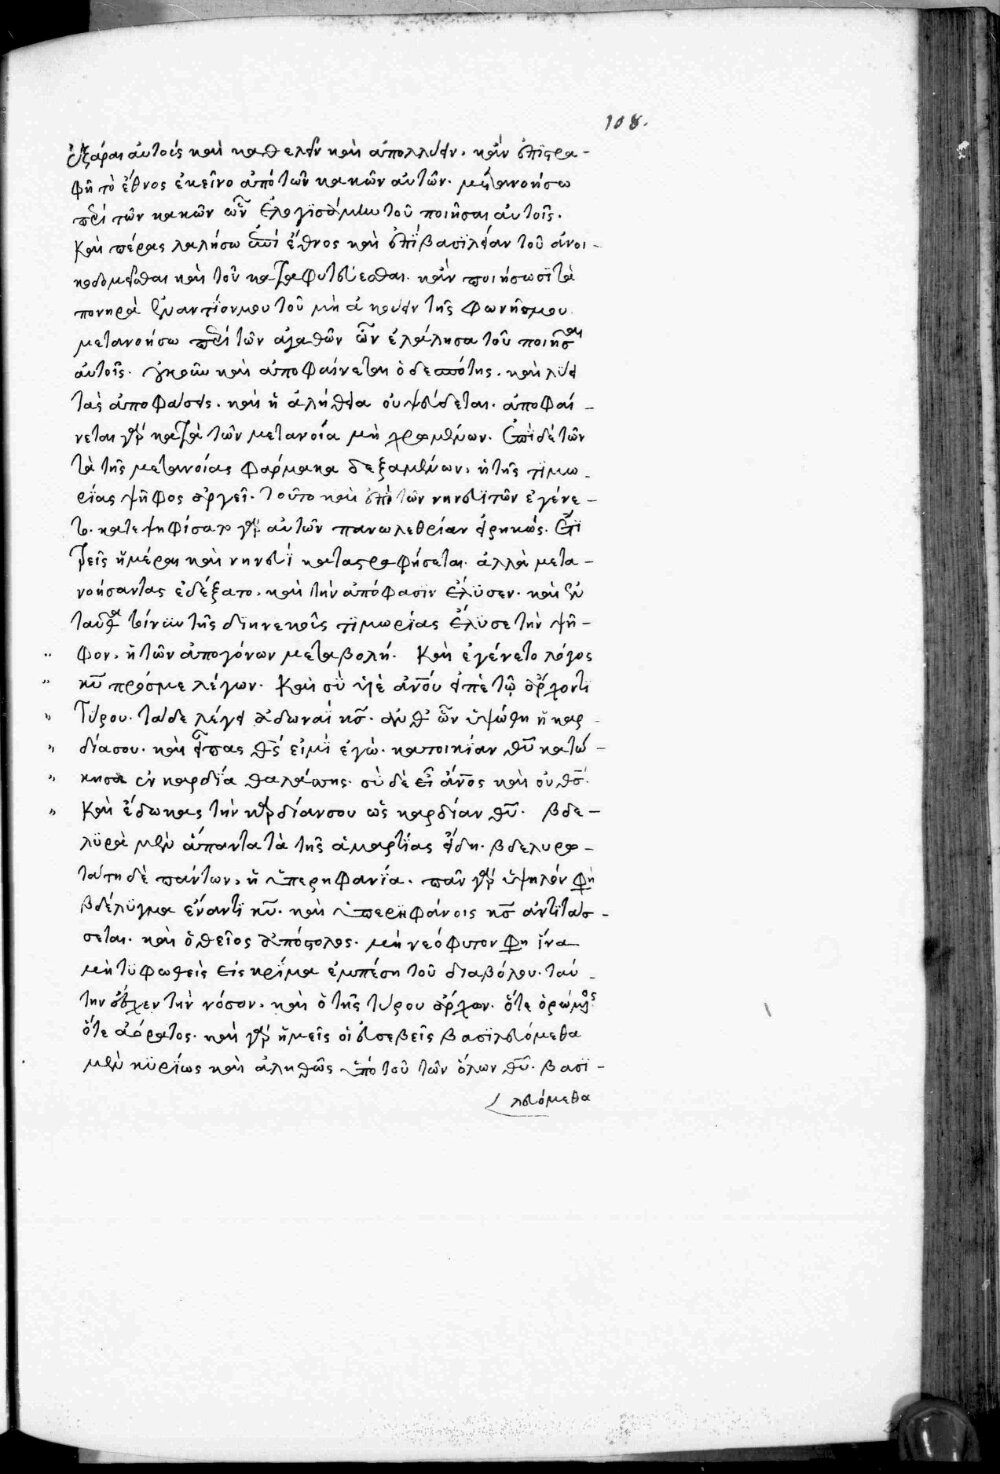 108.
ἐξάραι αὐτοὺς καὶ καθελεῖν καὶ ἀπολλύειν. κἂν ἐπιστρα-
φῇ τὸ ἔθνος ἐκεῖνο ἀπὸ τῶν κακῶν αὐτῶν. μετανοήσω
περὶ τῶν κακῶν ὧν ἐλογισάμην τοῦ ποιῆσαι αὐτοῖς.
Καὶ πέρας λαλήσω ἐπὶ ἔθνος καὶ ἐπὶ βασιλείαν τοῦ ἀνοι-
κοδομεῖσθαι καὶ τοῦ καταφυτεύεσθαι. κἂν ποιήσωσι τὰ
πονηρὰ ἐναντίον μου τοῦ μὴ ἀκούειν τῆς φωνῆς μου
μετανοήσω περὶ τῶν ἀγαθῶν ὧν ἐλάλησα τοῦ ποιῆσαι
αὐτοῖς. καὶ ἀποφαίνεται ὁ δεσπότης. καὶ λύει
τὰς ἀποφάσεις. καὶ ἡ ἀλήθεια οὐ ψεύδεται. ἀποφαί-
νεται γὰρ κατὰ τῶν μετανοία μὴ χρωμένων. ἐπὶ δὲ τῶν
τὰ τῆς μετανοίας φάρμακα δεξαμένων, ἡ τῆς τιμω-
ρίας ψῆφος ἀργεῖ. τοῦτο καὶ ἐπὶ τῶν νηνευϊτῶν ἐγένε-
το. κατεψηφίσατο γὰρ αὐτῶν πανωλεθρίαν εἰρηκώς. ἔτι
τρεῖς ἡμέραι καὶ νηνευῒ καταστραφήσεται. ἀλλὰ μετα-
νοήσαντας ἐδέξατο. καὶ τὴν ἀπόφασιν ἔλυσεν. καὶ ἐν
ταῦθα τοίνυν τῆς διηνεκοῦς τιμωρίας ἔλυσε τὴν ψῆ-
" φον, ἡ τῶν ἀπογόνων μεταβολή. Καὶ ἐγένετο λόγος
" κῦ πρός με λέγων. Καὶ σὺ υἱὲ ἀνοῦ εἰπὲ τῷ ἄρχοντι
" Τύρου. τάδε λέγει ἀδωναῒ κς. ἀνθ' ὧν ὑψώθη ἡ καρ-
" δία σου. καὶ εἶπας θς εἰμὶ ἐγώ. κατοικίαν θῦ κατώ-
" κησα ἐν καρδία θαλάσσης. σὺ δὲ εἶ ἄνος καὶ οὐ θς.
" Καὶ ἔδωκας τὴν καρδίαν σου ὡς καρδίαν θῦ. βδε-
λυρὰ μὲν ἅπαντα τὰ τῆς ἁμαρτίας εἴδη. βδελυρω-
τάτη δὲ πάντων, ἡ ὑπερηφανία. πᾶν γὰρ ὑψηλόν φη
βδέλυγμα ἔναντι κῦ. καὶ ὑπερηφάνοις κς ἀντιτάσ-
σεται. καὶ ὁ θεῖος ἀπόστολος. μὴ νεόφυτον φη ἵνα
μὴ τυφωθεὶς εἰς κρῖμα ἐμπέση τοῦ διαβόλου. ταύ-
την ἔσχεν τὴν νόσον. καὶ ὁ τῆς τύρου ἄρχων. ὅτε ὁρώμενος
ὅτε ἀόρατος. καὶ γὰρ ἡμεῖς οἱ εὐσεβεῖς βασιλευόμεθα
μὲν κυρίως καὶ ἀληθῶς ὑπὸ τοῦ τῶν ὅλων θῦ. βασι-
λευόμεθα